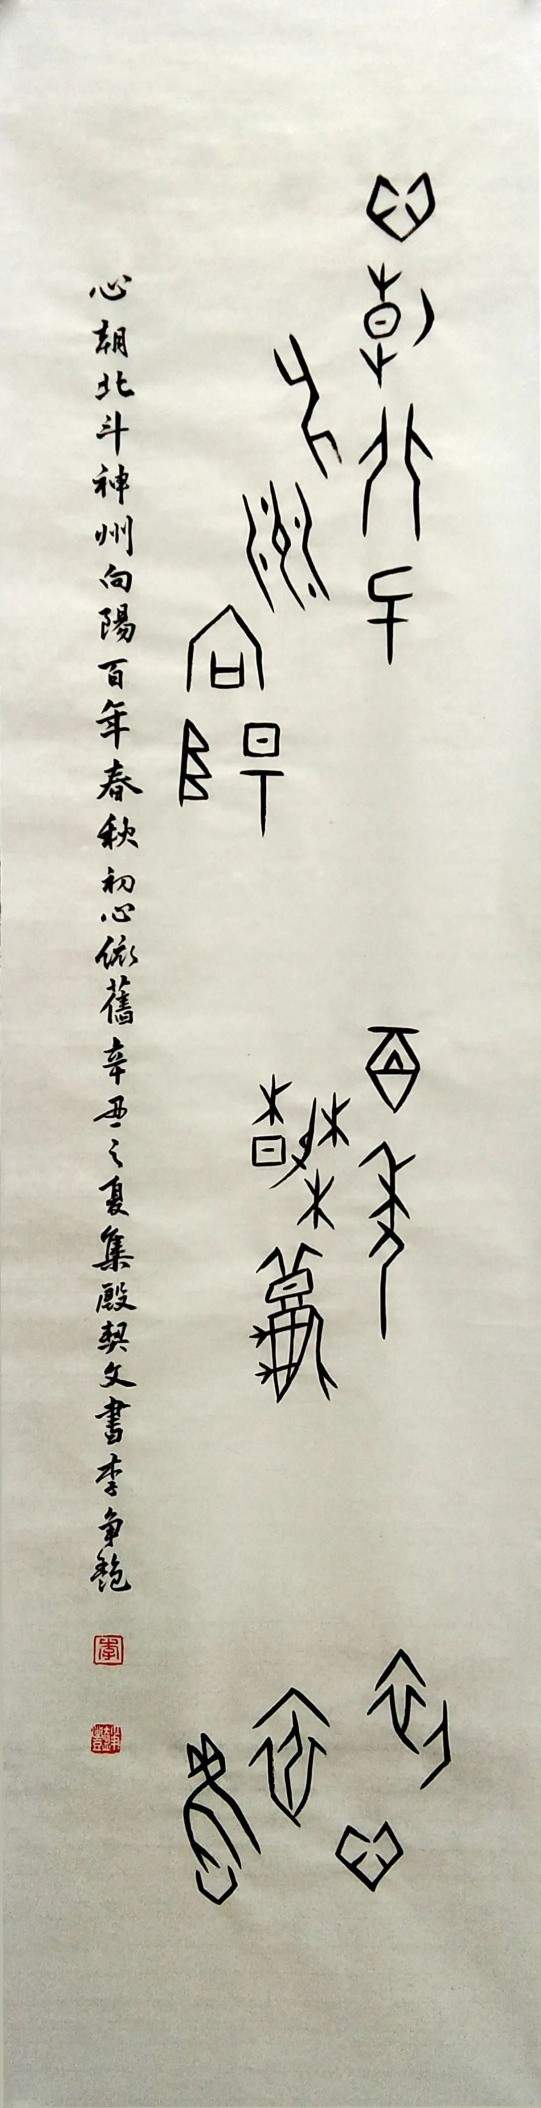 心朝北斗
神州向陽
百年
春秋
初心
依舊
心朝北斗神州向陽百年春秋初心依舊辛丑之夏集殷契文書李争艷
李